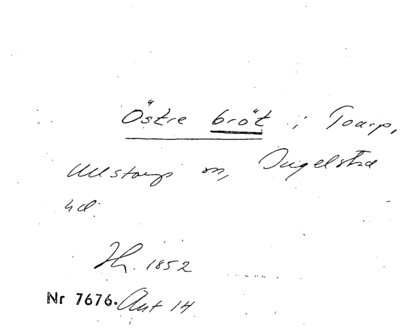 Östre bröt i Toarp,
Ullstorps sn, Ingelstad
hd.
Hh. 1852
Nr 7676. Ant 14